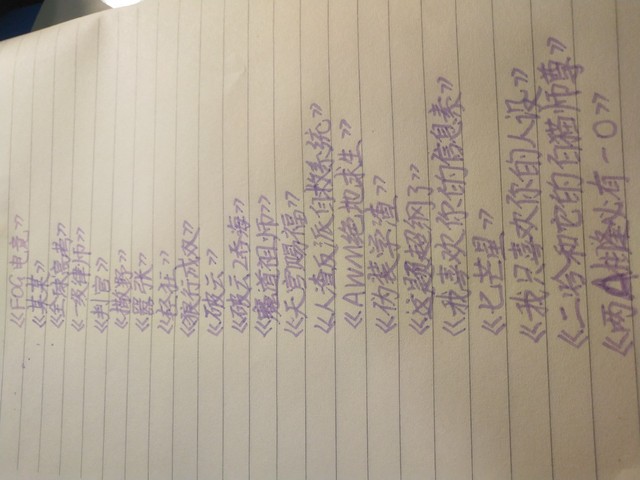 《FOG电竞》
《某某》
《全球高考》
《一级律师》
《判官》
《撒野》
《嚣张》
《轻狂》
《狼行成双》
《破云》
《破云2吞海》
《魔道祖师》
《天官赐福》
《人渣反派自救系统》
《AWM绝地求生》
《伪装学渣》
《这题超纲了》
《我喜欢你的信息素》
《七芒星》
《我只喜欢你的人设》
《二哈和它的白猫师尊》
《两A相逢必有一O》